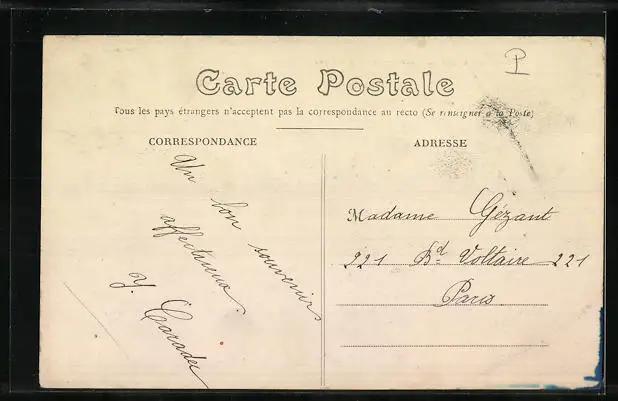 P
Carte Postale
Tous les pays étrangers n'acceptent pas la correspondance au recto (Se renseigner à la Poste)
CORRESPONDANCE
Un bon souvenir
affectueux.
Y. Carades
ADRESSE
Madame Gézant
221 Bd Voltaire 221
Paris